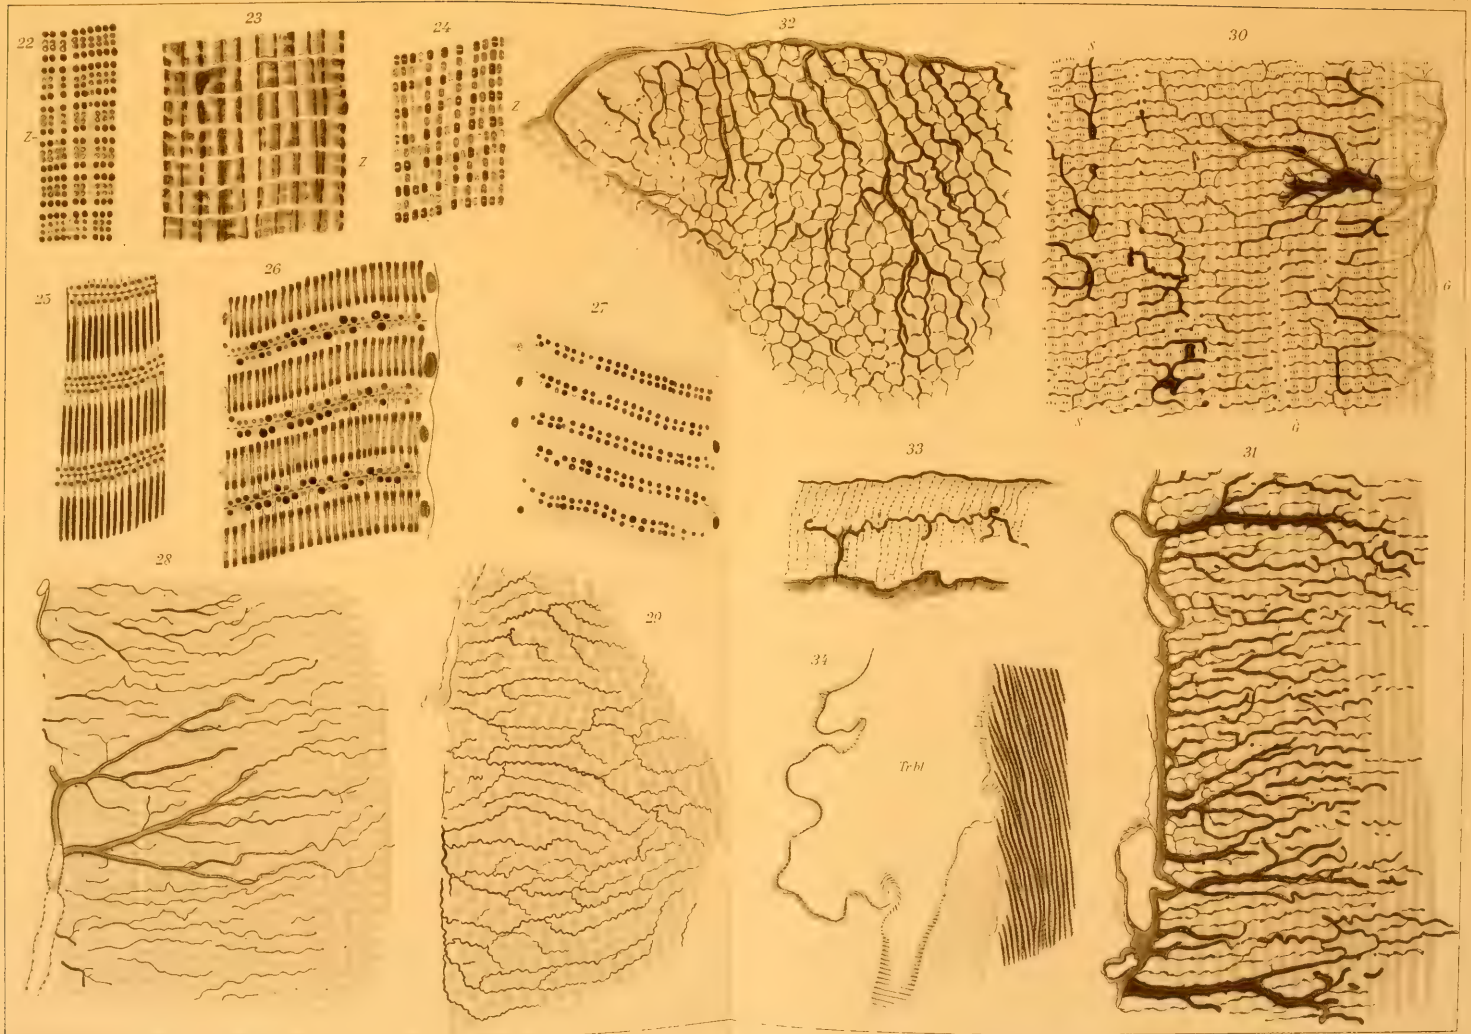 22
23
24
32
30
s
Z
Z-
Z
25
26
27
G
s
G
33
31
28
29
34
Trbl